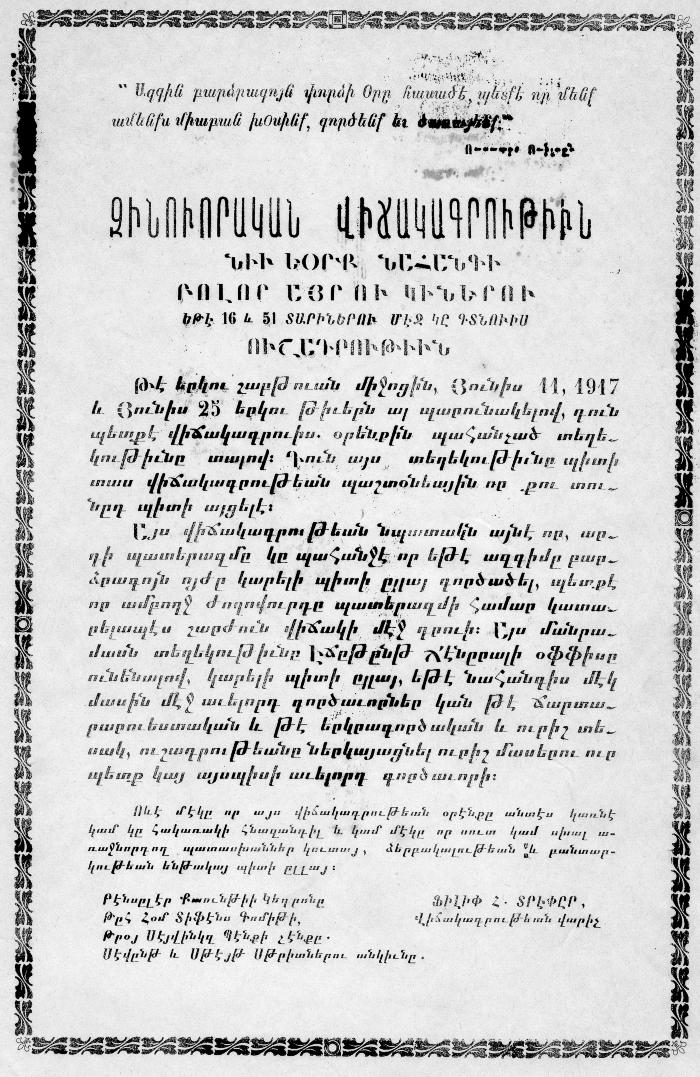 “ Ազգին բարձրագոյն փորձի Օրը հասածէ, պետքէ որ մենք
ամենքս միաբան խօսինք, գործենք եւ ծառայենք.”
ԶԻՆՈՒՈՐԱԿԱՆ ՎԻՃԱԿԱԳՐՈՒԹԻՒՆ
ՆԻՒ ԵՕՐՔ ՆԱՀԱՆԳԻ
ԲՈԼՈՐ ԱՅՐ ՈՒ ԿԻՆԵՐՈՒ
ԵԹԷ 16 և 51 ՏԱՐԻՆԵՐՈՒ ՄԷՋ ԿԸ ԳՏՆՈՒԻՍ
ՈՒՇԱԴՐՈՒԹԻՒՆ
Թէ երկու շաբթուան միջոցին, Յունիս 11, 1917
և Յունիս 25 երկու թիւերն ալ պարունակելով, դուն
պետքէ վիճակագրուիս. օրենքին պահանչած տեղե-
կութիւնը տալով։ Դուն այս տեղեկութիւնը պիտի
տաս վիճակագրութեան պաշտօնեային որ քու տու-
նըդ պիտի այցելէ։
Այս վիճակագրութեան նպատակն այնէ որ, ար-
դի պատերազմը կը պահանջէ որ եթէ ազգիմը բար-
ձրագոյն ոյժը կարելի պիտի ըլլայ գործածել, պետքէ
որ ամբողջ ժողովուրդը պատերազմի համար կատա-
րելապէս շարժուն վիճակի մէջ դրուի։ Այս մանրա-
մասն տեղեկութիւնը Էճըթընթ Ճէնըրալի օֆֆիսը
ունենալով, կարելի պիտի ըլլայ, եթէ նահանգիս մէկ
մասին մէջ աւելորդ գործաւորներ կան թէ ճարտա-
րարուեստական և թէ երկրագործական և ուրիշ տե-
սակ, ուշադրութեանը ներկայացնել ուրիշ մասերու ուր
պետք կայ այսպիսի աւելորդ գործաւորի։
Ոևէ մէկը որ այս վիճակագրութեան օրէնքը անտես կառնէ
կամ կը հակառակի հնազանդիլ և կամ մէկը որ սուտ կամ սխալ ա-
ռաջնորդող պատասխաններ կուտայ, ձերբակալութեան և բանտար-
կութեան ենթակայ պիտի ըլլայ։
Րէնսըլէր Քաունթիի Կեդրոնը
Թըհ Հօմ Տիֆէնս Գոմիթի,
Թրօյ Սէյվինկզ Պէնքի շէնքը.
Սէվընթ և Սթէյթ Սթրիտներու անկիւնը.
ՖԻԼԻՓ Հ. ՏՐԷՓԸՐ,
Վիճակադրութեան վարիչ